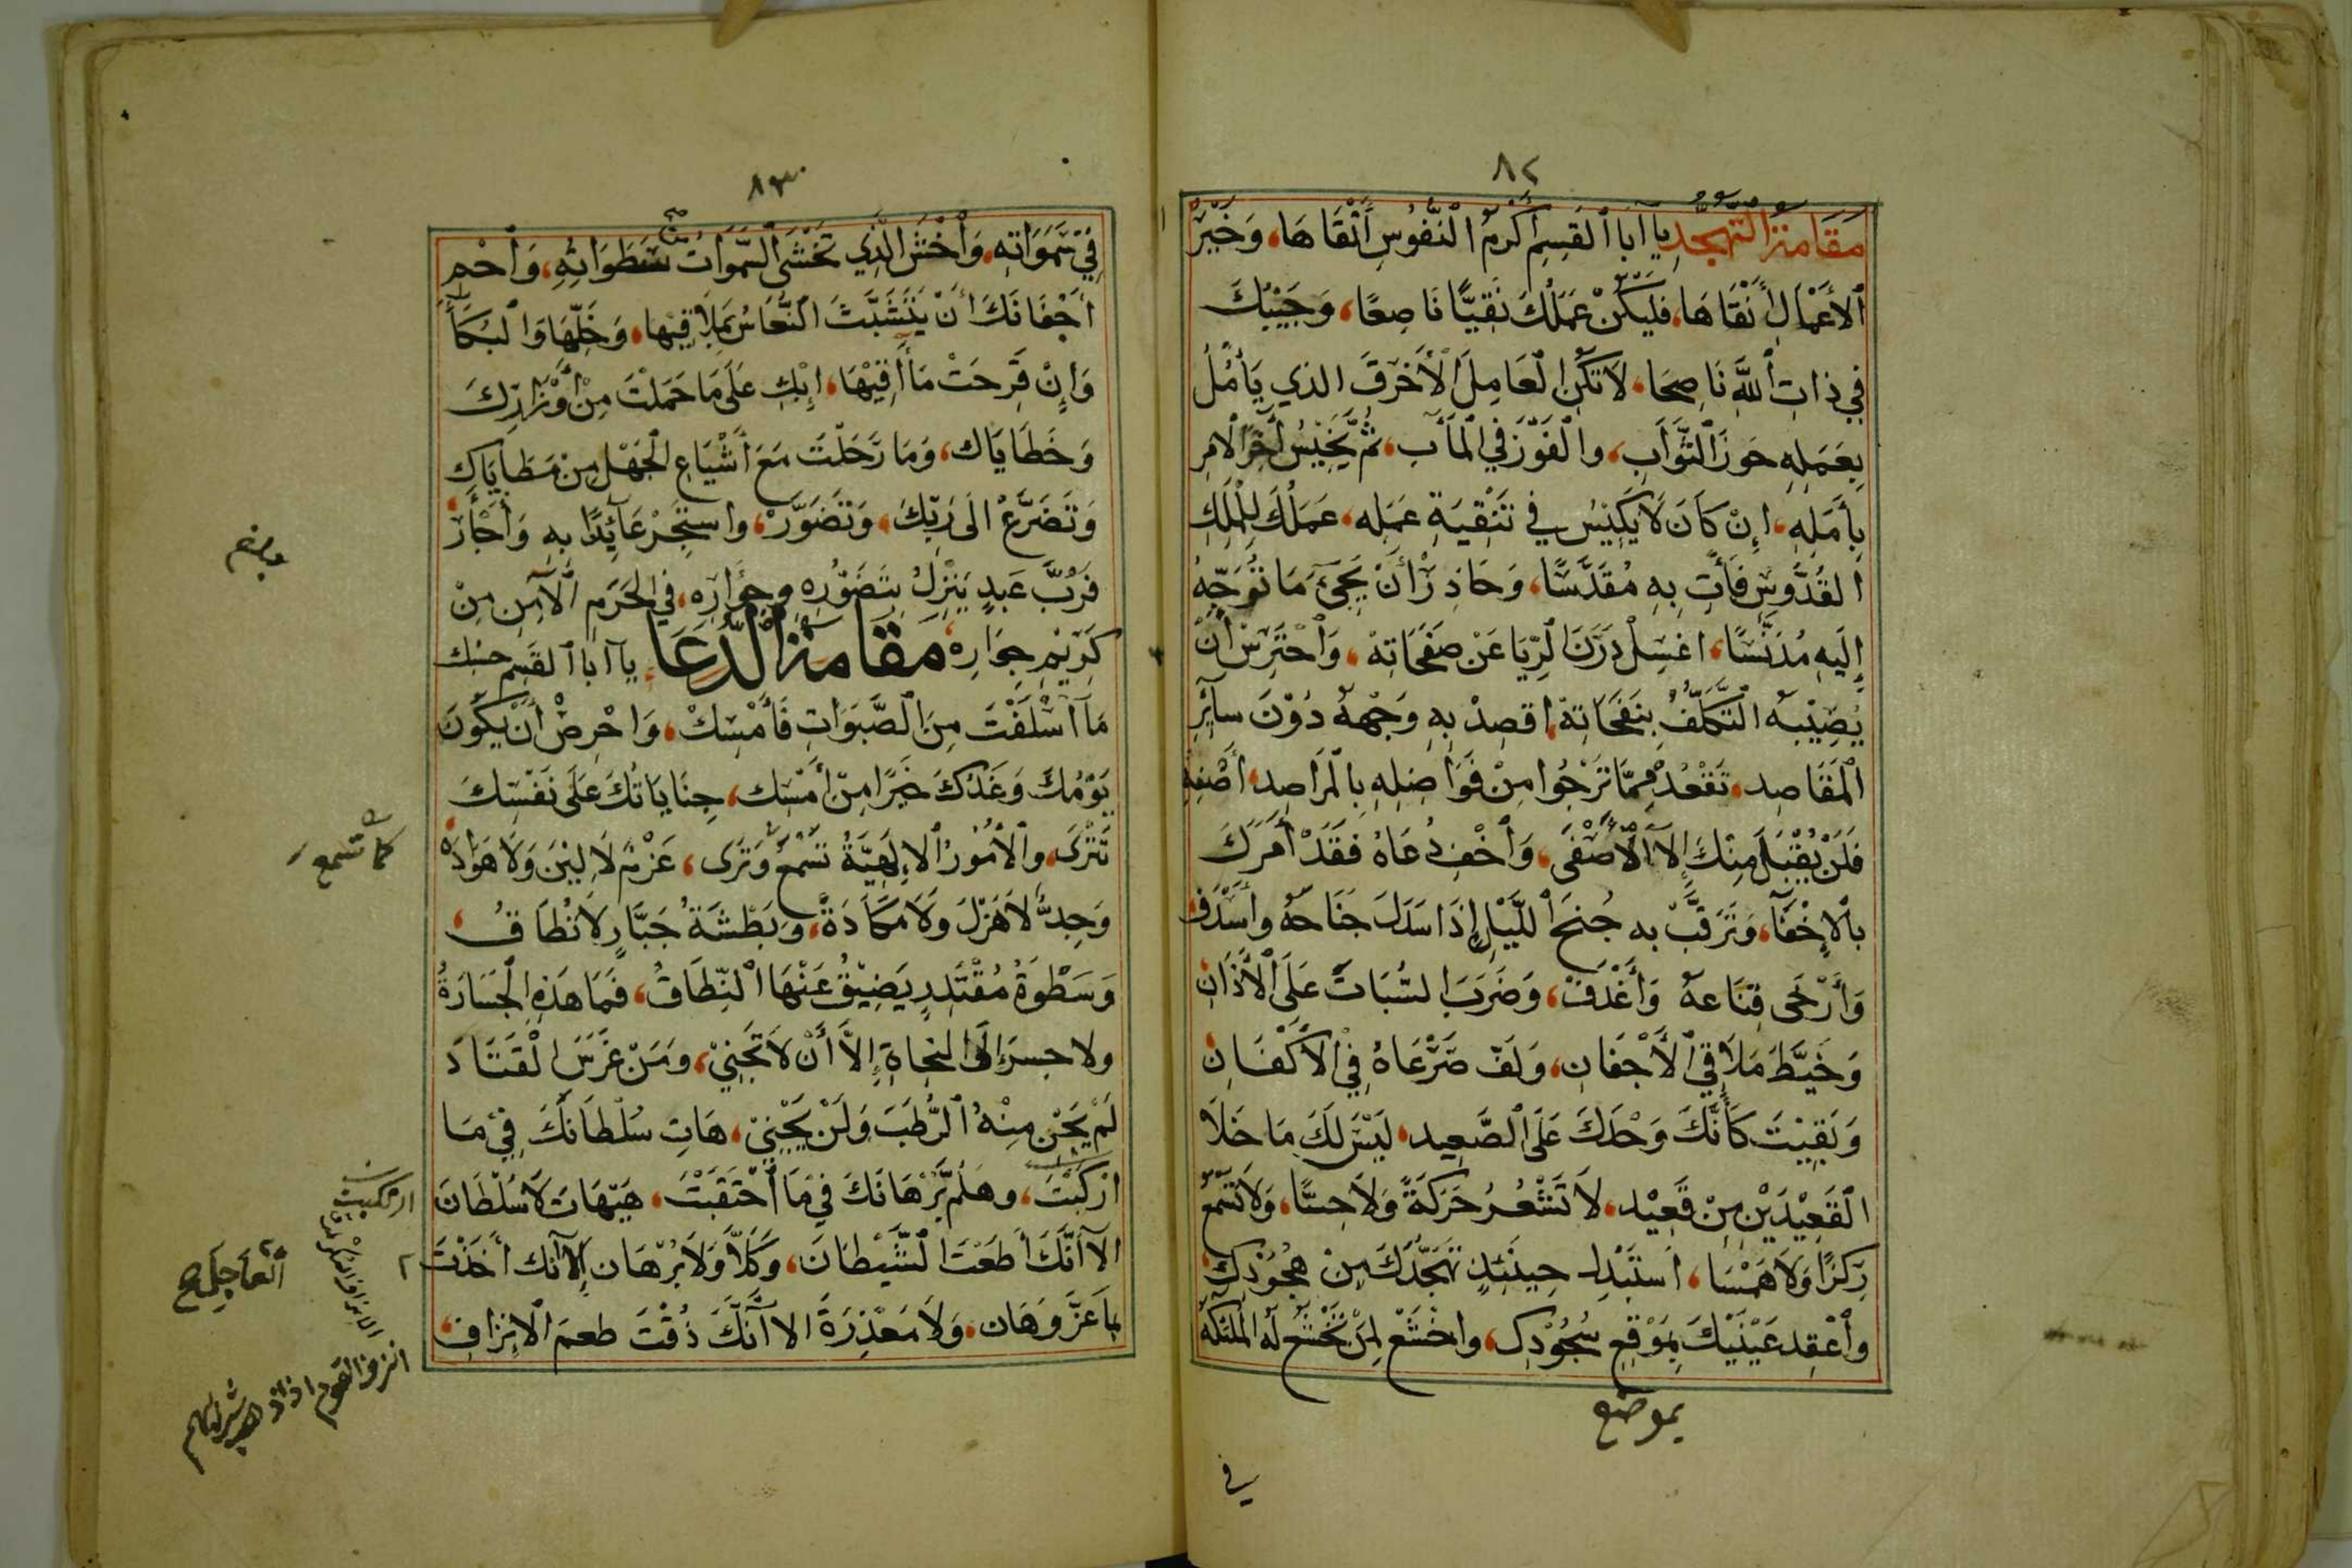 ٨٢
مَقَامَةُ التَّهَجُّدِ يآ ابا القسِمِ أَكْرَمُ النُّفُوسِ أَتْقَاهَا، وَخَيْرُ
الأَعْمَالِ أَنْقَاهَا، فليَكُنْ عَمَلُكَ نَقِيًّا نَاصِعًا، وَجَيْبُكَ
فِي ذاتِ اللهِ نَاصِحَا، لَا تَكُنِ الْعَامِلَ الأَخْرَقَ الذي يَأْمُلُ
بِعَمَلِهِ حَوزَ الثَّوَابِ، والْفَوْزَ فِي الْمَآبِ، ثُمَّ يَخِيْسُ آخِرَ الامْرِ
بِأَمَلِهِ، إِنْ كَانَ لَا يَكِيْسُ فِي تَنْقِيَةِ عَمَلِه، عَمَلُكَ لِلْمَلِكِ
القُدُّوسِ فَأْتِ بِهِ مُقَدَّسًا، وَحَاذِرْ أَنْ يَجِئَ مَا تُوَجِّهُ
إِلَيهِ مُدَنَّسًا، اغسِلْ دَرَنَ الرِّيَا عَنْ صَفَحَاتِهْ، وَاحْتَرِسْ أَنْ
يُصِيْبَه التَّكَلُّفُ بِنَفَحَاتِهْ، اقصِدْ بِهِ وَجْهَهُ دُوْنَ سآئِرِ
الْمَقَاصِد، تَقْعُدْ مِمَّا تَرْجُوا مِنْ فَوَاضِلِهِ بِالْمَرَاصِد، أَصْفِهِ
فَلَنْ يُقْبَلَ مِنْكَ إِلَّا الأَصْفَى، وَاخْفِ دُعَاهُ فَقَدْ أَمَرَكَ
بالاِخْفَآءِ، وَتَرَقَّبْ به جُنحَ اللَّيْلِ إِذَا سَدَلَ جَنَاحَهُ وأَسْدَفْ
وَأَرْخَى قِنَاعهُ وَأَغْدَفْ، وَضَرَبَ السُّبَاتَ عَلَى الأَذَانِ
وَخَيَّطَ مَلَاقِي الأَجْفَانِ، وَلَفّ صَرْعَاهُ فِي الأَكْفَانِ
وَبَقِيْتَ كَأَنَّكَ وَحْدَكَ عَلَى الصَّعِيد، لَيْسَ لَكَ مَا خَلَا
القَعِيْدَيْنِ مِنْ قَعِيْد، لَا تَشْعُرُ حَرَكَةً وَلَا حِسًّا، وَلَا تَسْمَعُ
رِكزًا وَلَا هَمْسًا، اسْتَبْدِلْ حِينَئِذٍ تَهَجُّدَكَ مِنْ هُجُوْدِكَ
وأَعْقِد عَيْنَيْكَ بِمَوْقِعِ سُجُوْدِكَ، واخْشَعْ لِمَنْ تَخْشَع لَه المَلئكَة
بموضع
في
٨٣
فِيْ سَّمَوَاتِه، وَاخْشَ الَّذِي تَخْشَى السَّمَوَاتُ سَطَوَاتِهِ، وَاحْمِ
أَجْفَانَكَ أَنْ يَتَشَبَّثَ النُّعَاسُ بِمَلَاقِيْهَا، وَخَلِّهَا وَالْبُكَآءَ
وَإِنْ قَرِحَتْ مَآقِيْهَا، إِبْكِ عَلَى مَا حَمَلْتَ مِنْ أَوْزَارِكَ
وَخَطَايَاك، وَمَا رَحَلْتَ مَعَ أَشْيَاعِ الْجَهْلِ مِنْ مَطَايَاكَ
وَتَضَرَّعْ الَى رَبِّكَ، وَتَضَوَّرْ، واستَجِرْ عَآئِذًا بِهِ وَاجْأَرْ
فَرُبَّ عَبدٍ يَنْزِلُ بِتَضَوُّرِهِ وجُؤَارِه، فِي الحَرَمِ الآمِنِ مِنْ
كَرِيْمِ جِوَارِهْ، مَقَامَةُ الدُّعَاءِ، يآ ابا القَسِم حسْبُك
مَآ اسْلَفْتَ مِنَ الصَّبَوَاتِ فَأَمْسِكْ، وَاحْرِصْ أَنْ يَكُوْنَ
يَوْمُكَ وَغَدُكَ خَيْرًا مِنْ أَمْسِك، جِنَايَاتُكَ عَلَى نَفْسِكَ
تَتْرَى، والأُمُوْرُ الاِلَهِيَّةُ تَسْمَعُ وَتَرَى، عَزْمٌ لَا لِيْنَ وَلَا هَوَادَهْ
وَجِدٌّ لَا هَزْلَ وَلَا مَكَادَةً، وَبَطْشَةُ جَبَّارٍ لَا تُطَاقُ،
وَسَطْوَةُ مُقْتَدِرٍ يَضِيْقُ عَنْهَا النِّطَاقُ، فَمَا هَذِهِ الْجَسَارَةُ
ولا جسرَ إلَى النجاةِ إِلَّا أَنْ لَا تَجْنِيْ، ومَنْ غَرَسَ الْقَتَادَ
لَمْ يَجْنِ مِنْهُ الرُّطَبَ وَلَنْ يَجْنِيْ، هَاتِ سُلْطَانَكَ فِيْ مَا
ارْتكَبْتَ، وهَلُمَّ بُرْهَانَكَ فِيْ مَا احْتَقَبْتَ، هَيْهَاتَ لَا سُلْطَانَ
الآ أَنَّكَ أَطَعْتَ الشَّيْطَانَ، وَكَلَّا وَلَا بُرْهَان إِلَّا أنّك أَخَذْتَ
بِمَا عَزَّ وَهَان، وَلَا مَعْذِرَةَ الا أَنَّكَ ذُقْتَ طعمَ الاِنزافِ
كما تسمع
ارتكبت
العاجلِ صح
انزف القوم اذا نفد شرابهم